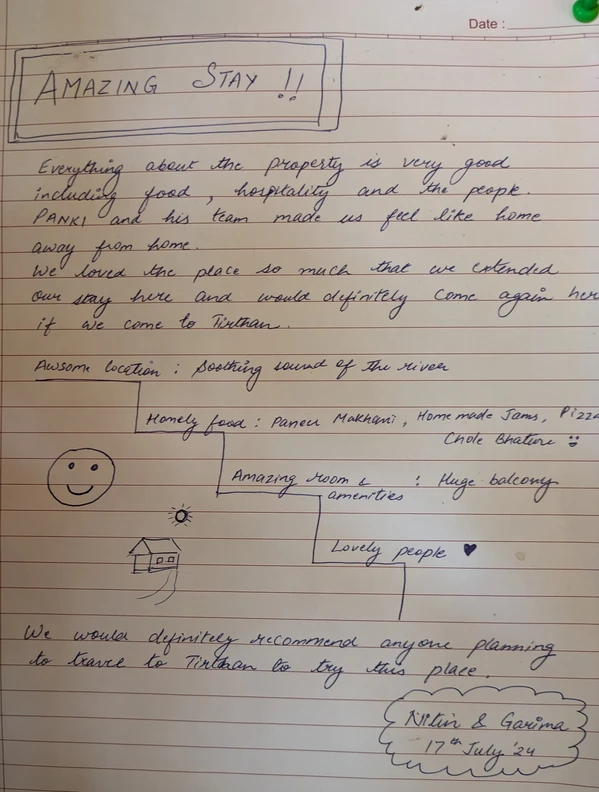 Date :
AMAZING STAY !!
Everything about the property is very good
including food , hospitality and the people.
PANKI and his team made us feel like home
away from home.
We loved the place so much that we extended
our stay here and would definitely come again her
if we come to Tirthan.
Awsome location : Soothing sound of the river
Homely food : Paneer Makhani , Home made Jams, Pizza
Chole Bhature
Amazing room & : Huge balcony
amenities
Lovely people ♥
We would definitely recommend anyone planning
to travel to Tirthan to try this place.
Nitin & Garima
17th July '24